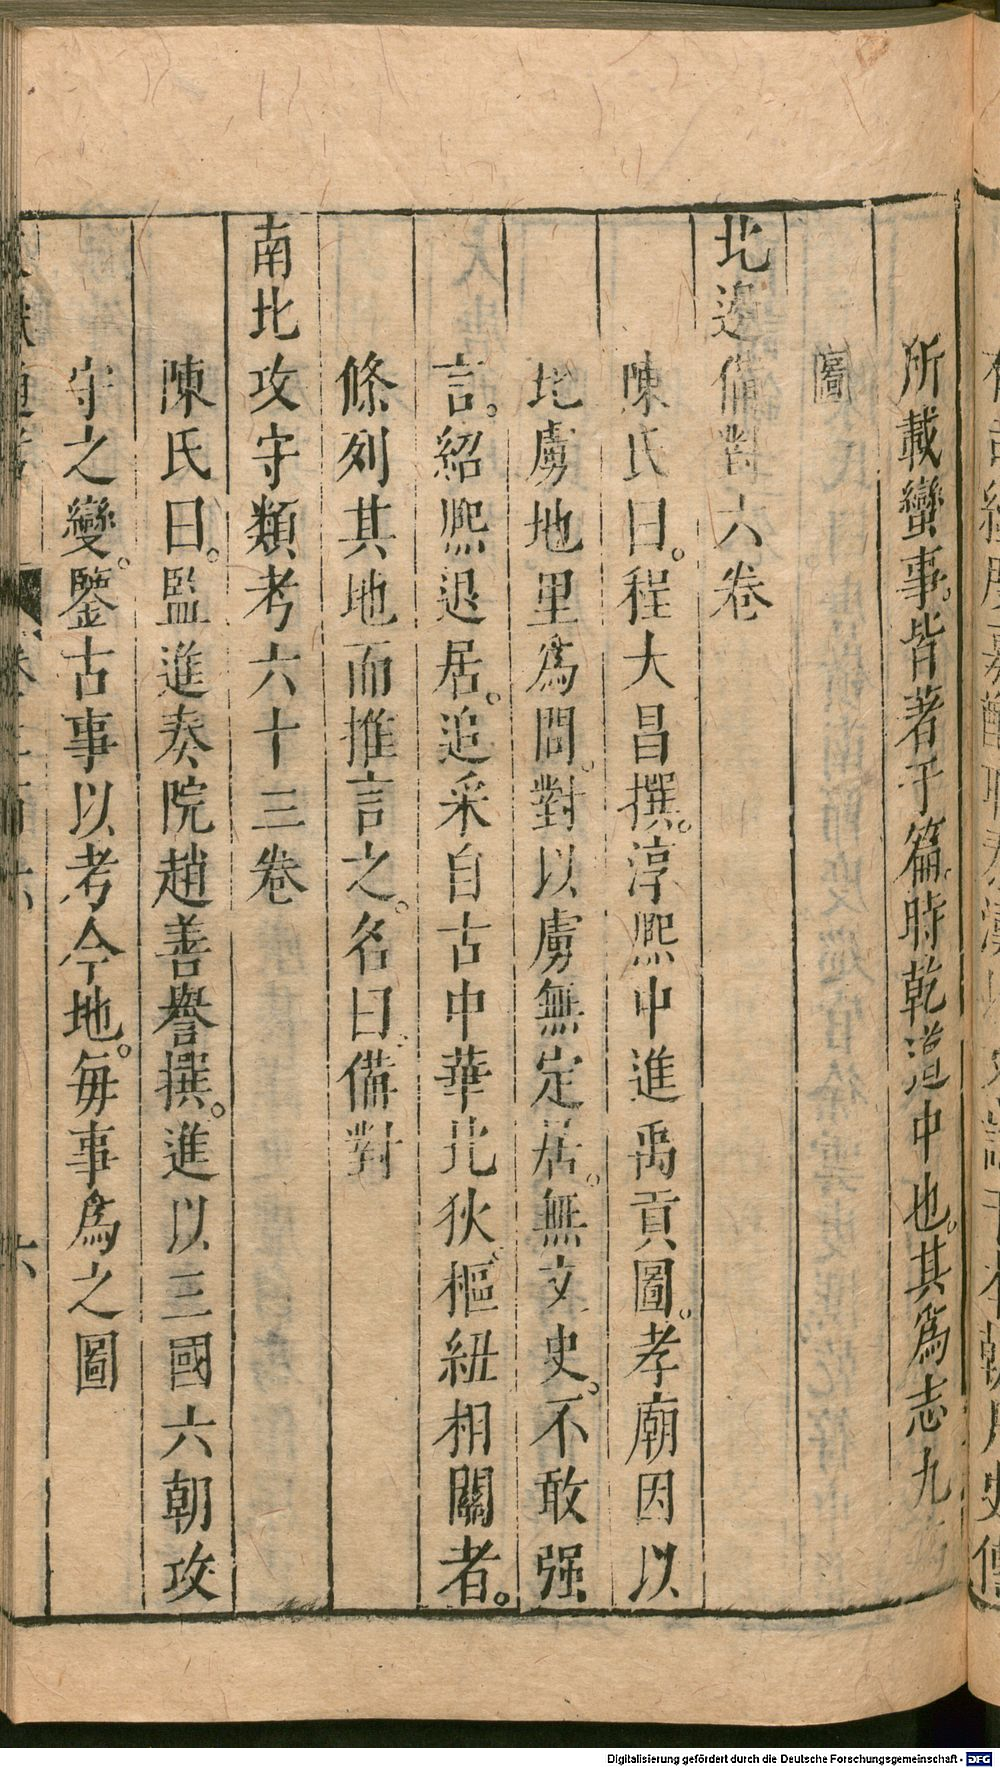 所載蠻事。皆著于篇。時乾道中也。其爲志九
圖
北邊備對六卷
陳氏曰。程大昌撰。淳熙中進禹貢圖。孝廟因以
北虜地里爲問。對以虜無定居。無文史。不敢强
言。紹熙退居。追采自古中華北狄樞紐相關者。
條列其地而推言之。名曰備對
南北攻守類考六十三卷
陳氏曰。監進奏院趙善譽撰。進以三國六朝攻
守之變。鑒古事以考今地。每事爲之圖
六
Digitalisierung gefördert durch die Deutsche Forschungsgemeinschaft - DFG